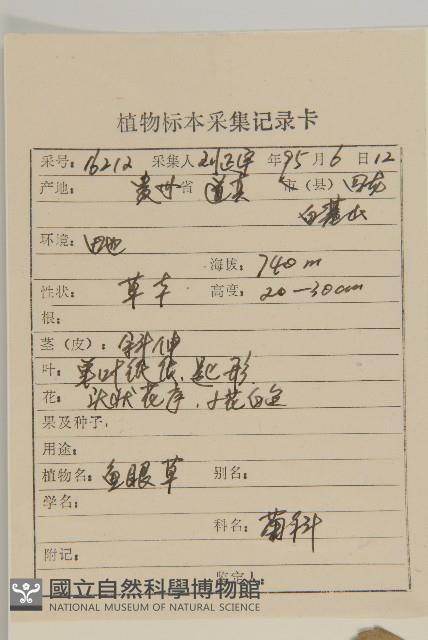 植物标本采集记录卡
采号：16212 采集人 刘正宇 年95月6日12
产地：贵州省 道真 市（县）
环境：田地
海拔：740m
性状：草本 高度：20—30cm
根：
茎（皮）：斜伸
叶：单叶纸质，匙形
花：头状花序，小花白色
果及种子：
用途：
植物名：鱼眼草 别名：
学名：
科名：菊科
附记：
鉴定人
國立自然科學博物館
NATIONAL MUSEUM OF NATURAL SCIENCE